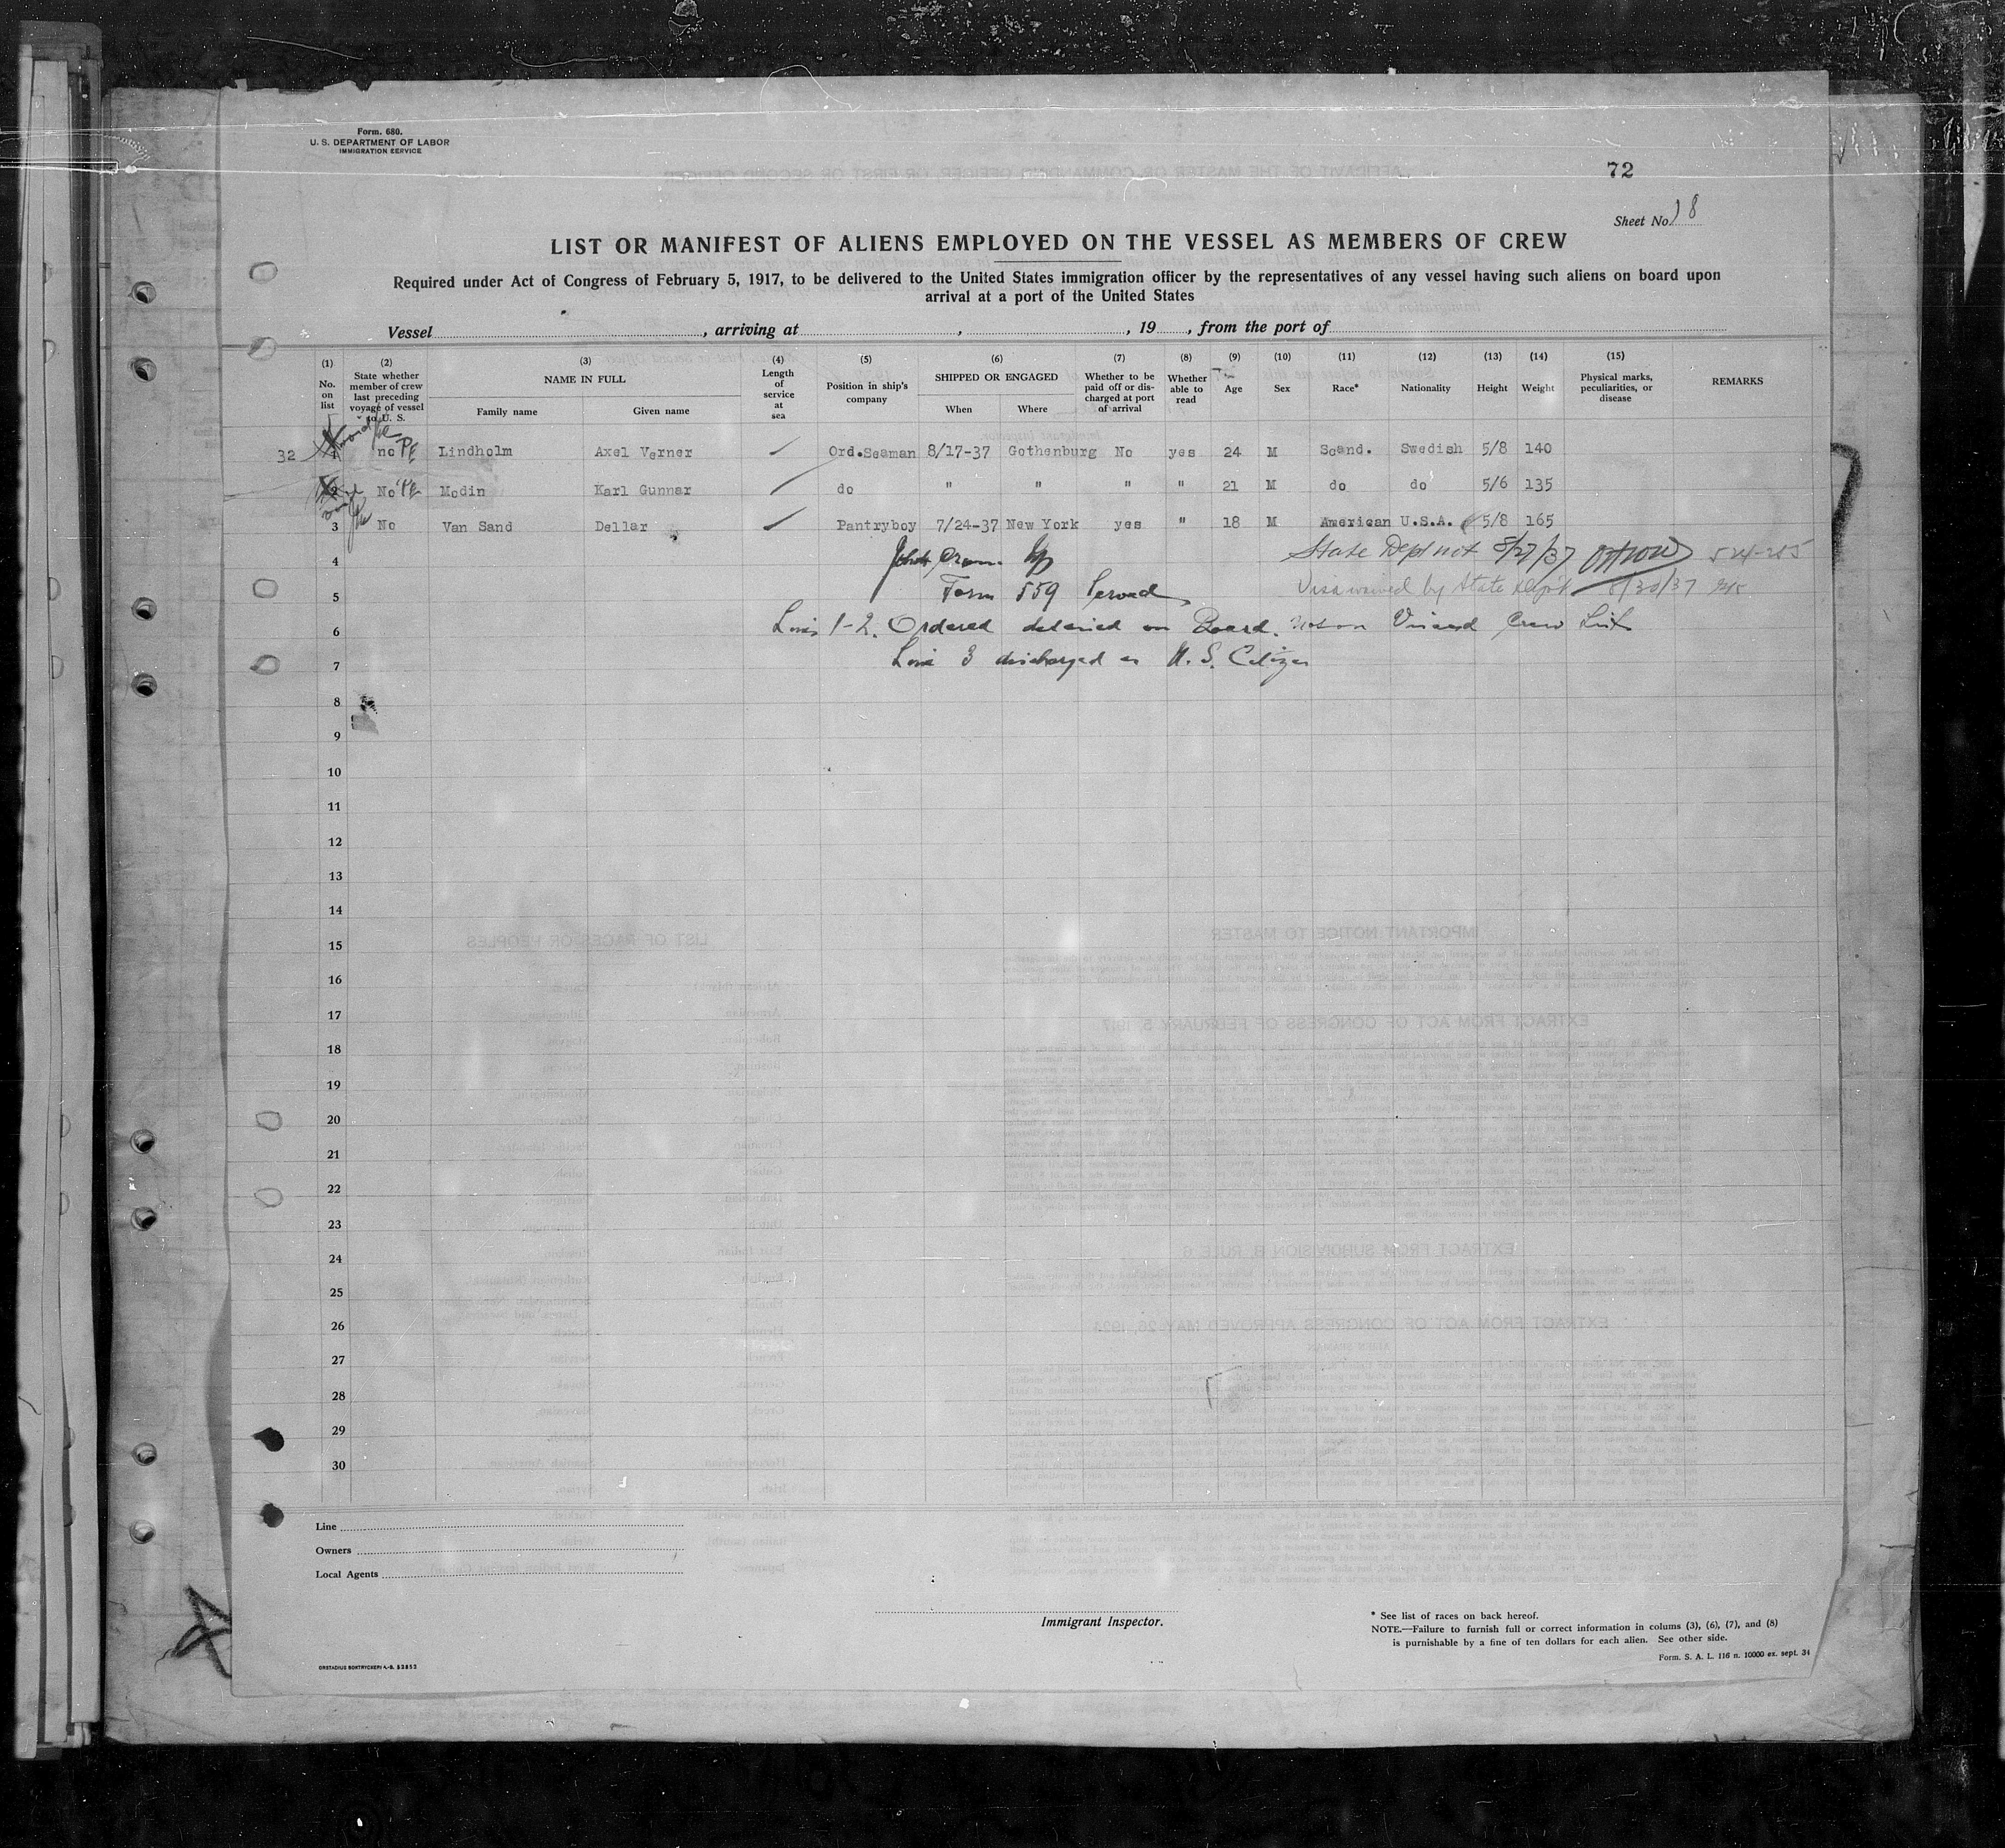 Form. 680.
U. S. DEPARTMENT OF LABOR
IMMIGRATION SERVICE
72
Sheet No. 18
LIST OR MANIFEST OF ALIENS EMPLOYED ON THE VESSEL AS MEMBERS OF CREW
Required under Act of Congress of February 5, 1917, to be delivered to the United States immigration officer by the representatives of any vessel having such aliens on board upon
arrival at a port of the United States
Vessel , arriving at , , 19 , from the port of
(1) No. on list
(2) State whether member of crew last preceding voyage of vessel to U. S.
(3) NAME IN FULL Family name Given name
(4) Length of service at sea
(5) Position in ship's company
(6) SHIPPED OR ENGAGED When Where
(7) Whether to be paid off or discharged at port of arrival
(8) Whether able to read
(9) Age
(10) Sex
(11) Race*
(12) Nationality
(13) Height
(14) Weight
(15) Physical marks, peculiarities, or disease
REMARKS
32 1 no Lindholm Axel Verner Ord.Seaman 8/17-37 Gothenburg No yes 24 M Scand. Swedish 5/8 140
2 No Modin Karl Gunnar do " " " " 21 M do do 5/6 135
3 No Van Sand Dellar Pantryboy 7/24-37 New York yes " 18 M American U.S.A. 5/8 165
4 State Dept not 8/27/37
5 Form 559 Served Visa waived by State Dept 8/30/37
6 Lines 1-2. Ordered detained on Board. Not on Visaed Crew List
7 Line 3 discharged as U. S. Citizen
8
9
10
11
12
13
14
15
16
17
18
19
20
21
22
23
24
25
26
27
28
29
30
Line
Owners
Local Agents
Immigrant Inspector.
* See list of races on back hereof.
NOTE.—Failure to furnish full or correct information in colums (3), (6), (7), and (8)
is purnishable by a fine of ten dollars for each alien. See other side.
Form. S. A. L. 116 n. 10000 ex. sept. 34